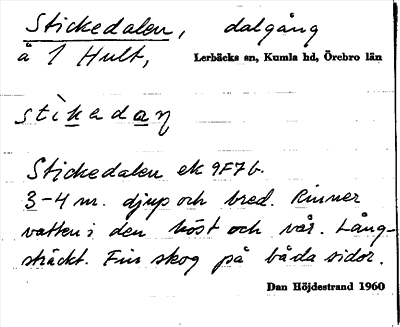 Stickedalen, dalgång
å 1 Hult, Lerbäcks sn, Kumla hd, Örebro län
stìkedaɳ
Stickedalen ek 9F7b.
3-4 m. djup och bred. Rinner
vatten i den höst och vår. Lång-
sträckt. Fin skog på båda sidor.
Dan Höjdestrand 1960